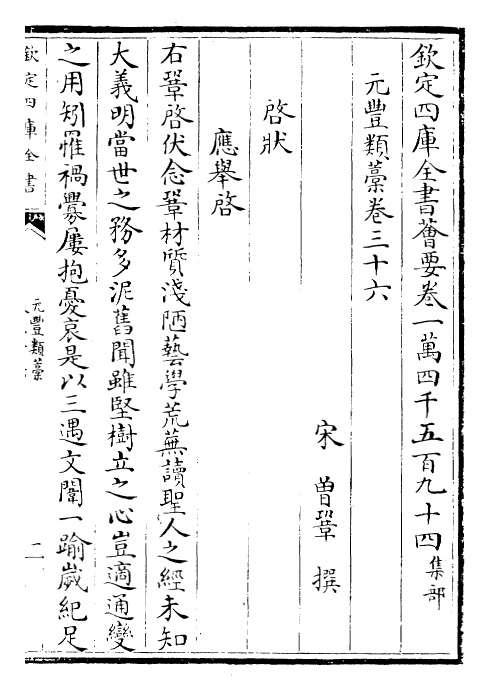 欽定四庫全書薈要卷一萬四千五百九十四集部
元豐類藳卷三十六
宋曾鞏撰
啓狀
應舉啓
右鞏啓伏念鞏材質淺陋藝學荒蕪讀聖人之經未知
大義明當世之務多泥舊聞雖堅樹立之心豈適通變
之用矧罹禍釁屢抱憂哀是以三遇文闈一踰歲紀足
欽定四庫全書
元豐類藳
二